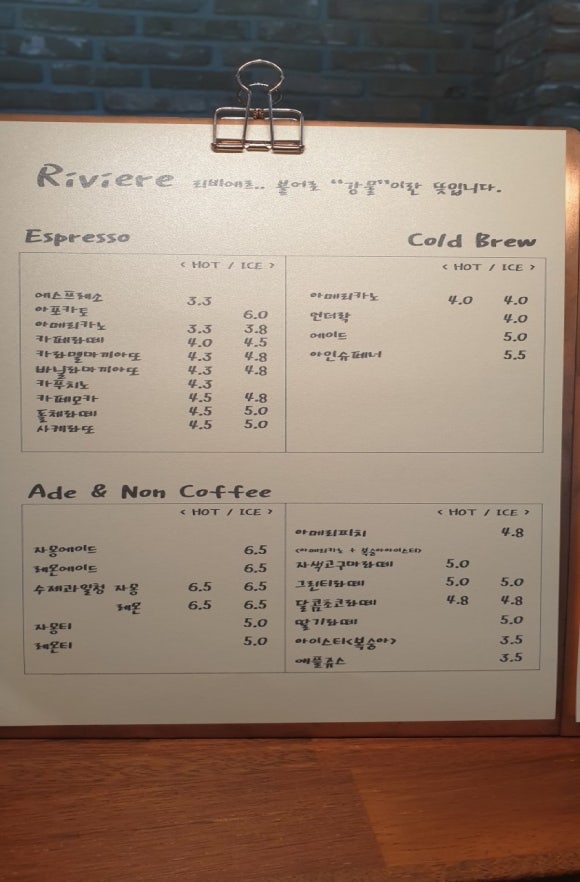 Riviere 리비에르.. 불어로 "강물"이란 뜻입니다.
Espresso
< HOT / ICE >
에스프레소 3.3
아포카토 6.0
아메리카노 3.3 3.8
카페라떼 4.0 4.5
카라멜마끼아또 4.3 4.8
바닐라마끼아또 4.3 4.8
카푸치노 4.3
카페모카 4.5 4.8
돌체라떼 4.5 5.0
사케라또 4.5 5.0
Cold Brew
< HOT / ICE >
아메리카노 4.0 4.0
언더락 4.0
에이드 5.0
아인슈페너 5.5
Ade & Non Coffee
< HOT / ICE >
자몽에이드 6.5
레몬에이드 6.5
수제과일청 자몽 6.5 6.5
레몬 6.5 6.5
자몽티 5.0
레몬티 5.0
< HOT / ICE >
아메리피치 4.8
<아메리카노 + 복숭아아이스티>
자색고구마라떼 5.0
그린티라떼 5.0 5.0
달콤초코라떼 4.8 4.8
딸기라떼 5.0
아이스티<복숭아> 3.5
애플쥬스 3.5